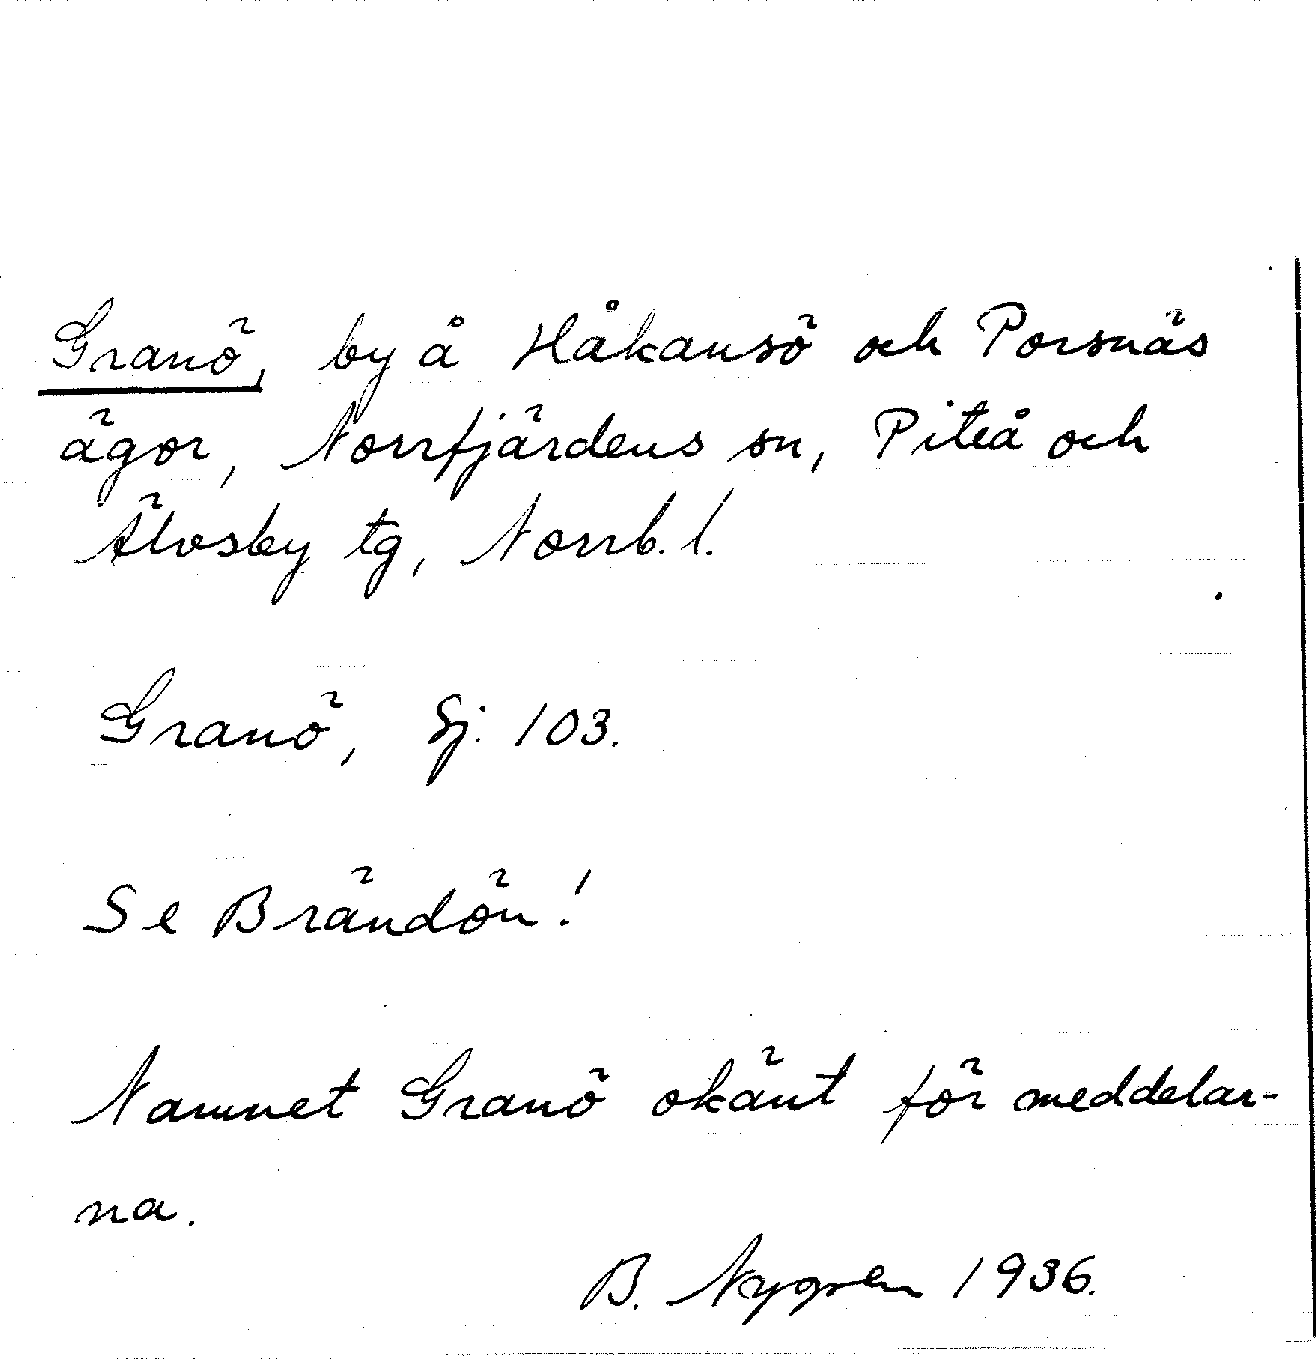 Granö, by å Håkansö och Porsnäs
ägor, Norrfjärdens sn, Piteå och
Älvsby tg, Norrb. l.
Granö, Sj. 103.
Se Brändön!
Namnet Granö okänt för meddelar-
na.
B. Nygren 1936.